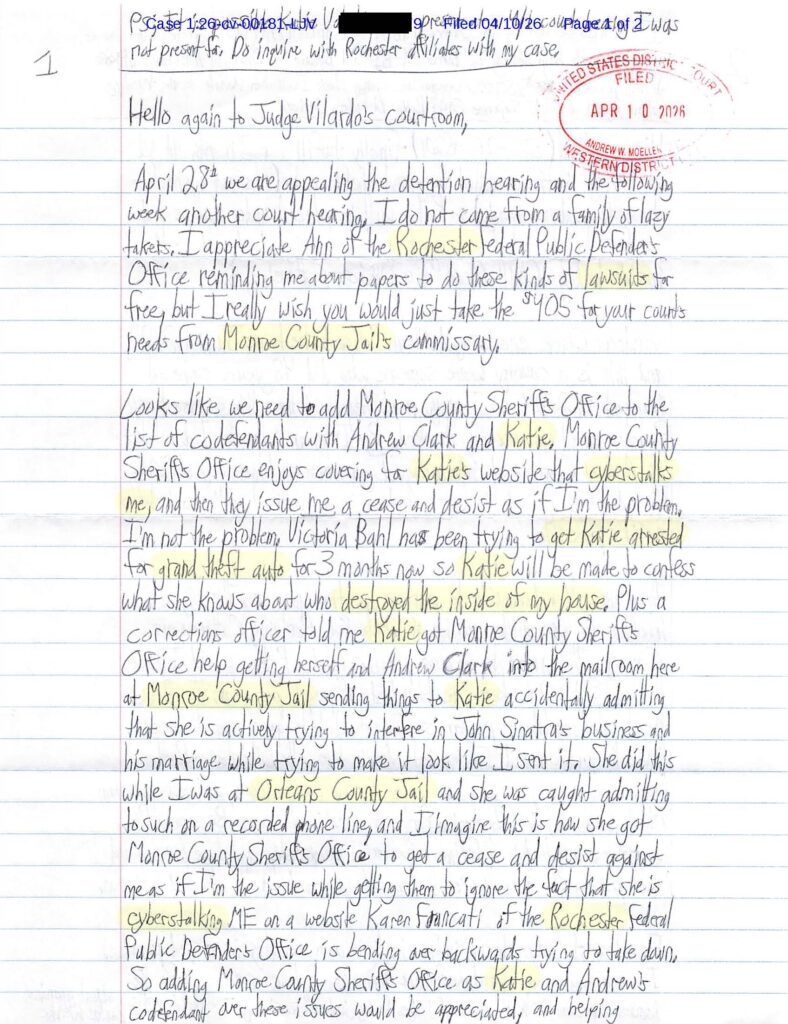 Case 1:26-cv-00181-LJV 9 Filed 04/10/26 Page 1 of 2
I was
not present for. Do inquire with Rochester affiliates with my case.
1
UNITED STATES DISTRICT COURT
FILED
APR 10 2026
ANDREW W. MOELLER
WESTERN DISTRICT
Hello again to Judge Vilardo's courtroom,
April 28th we are appealing the detention hearing and the following
week another court hearing. I do not come from a family of lazy
takers. I appreciate Ann of the Rochester Federal Public Defender's
Office reminding me about papers to do these kinds of lawsuits for
free, but I really wish you would just take the $405 for your court's
needs from Monroe County Jail's commissary.
Looks like we need to add Monroe County Sheriff's Office to the
list of codefendants with Andrew Clark and Katie. Monroe County
Sheriff's Office enjoys covering for Katie's website that cyberstalks
me, and then they issue me a cease and desist as if I'm the problem.
I'm not the problem. Victoria Bahl has been trying to get Katie arrested
for grand theft auto for 3 months now so Katie will be made to confess
what she knows about who destroyed the inside of my house. Plus a
corrections officer told me Katie got Monroe County Sheriff's
Office help getting herself and Andrew Clark into the mailroom here
at Monroe County Jail sending things to Katie accidentally admitting
that she is actively trying to interfere in John Sinatra's business and
his marriage while trying to make it look like I sent it. She did this
while I was at Orleans County Jail and she was caught admitting
to such on a recorded phone line, and I imagine this is how she got
Monroe County Sheriff's Office to get a cease and desist against
me as if I'm the issue while getting them to ignore the fact that she is
cyberstalking ME on a website Karen Francati of the Rochester Federal
Public Defender's Office is bending over backwards trying to take down.
So adding Monroe County Sheriff's Office as Katie and Andrew's
codefendant over these issues would be appreciated, and helping